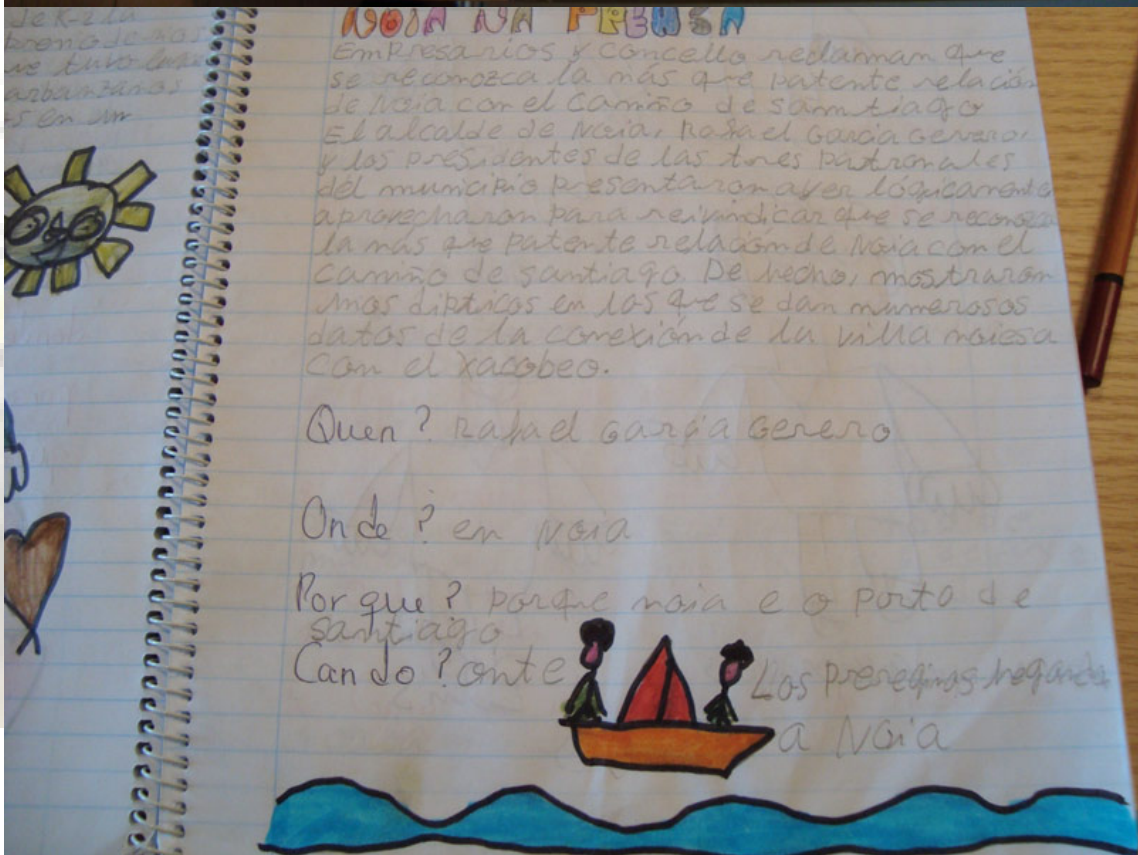 de K-2 la
premio de
ve tuvo
garbanzos
os en un
NOIA NA PRENSA
Empresarios y concello reclaman que
se reconozca la más que patente relación
de Noia con el Camiño de Santiago
El alcalde de Noia, Rafael García Gerero,
y los presidentes de las tres patronales
del municipio presentaron ayer lógicamente
aprovecharon para reivindicar que se reconozca
la mas que patente relación de Noia con el
camiño de santiago. De hecho, mostraron
unos dípticos en los que se dan numerosos
datos de la conexión de la villa noiesa
con el Xacobeo.
Quen? Rafael García Gerero
Onde? en Noia
Por que? porque noia e o porto de
santiago
Cando? onte
Los prereginos
a Noia